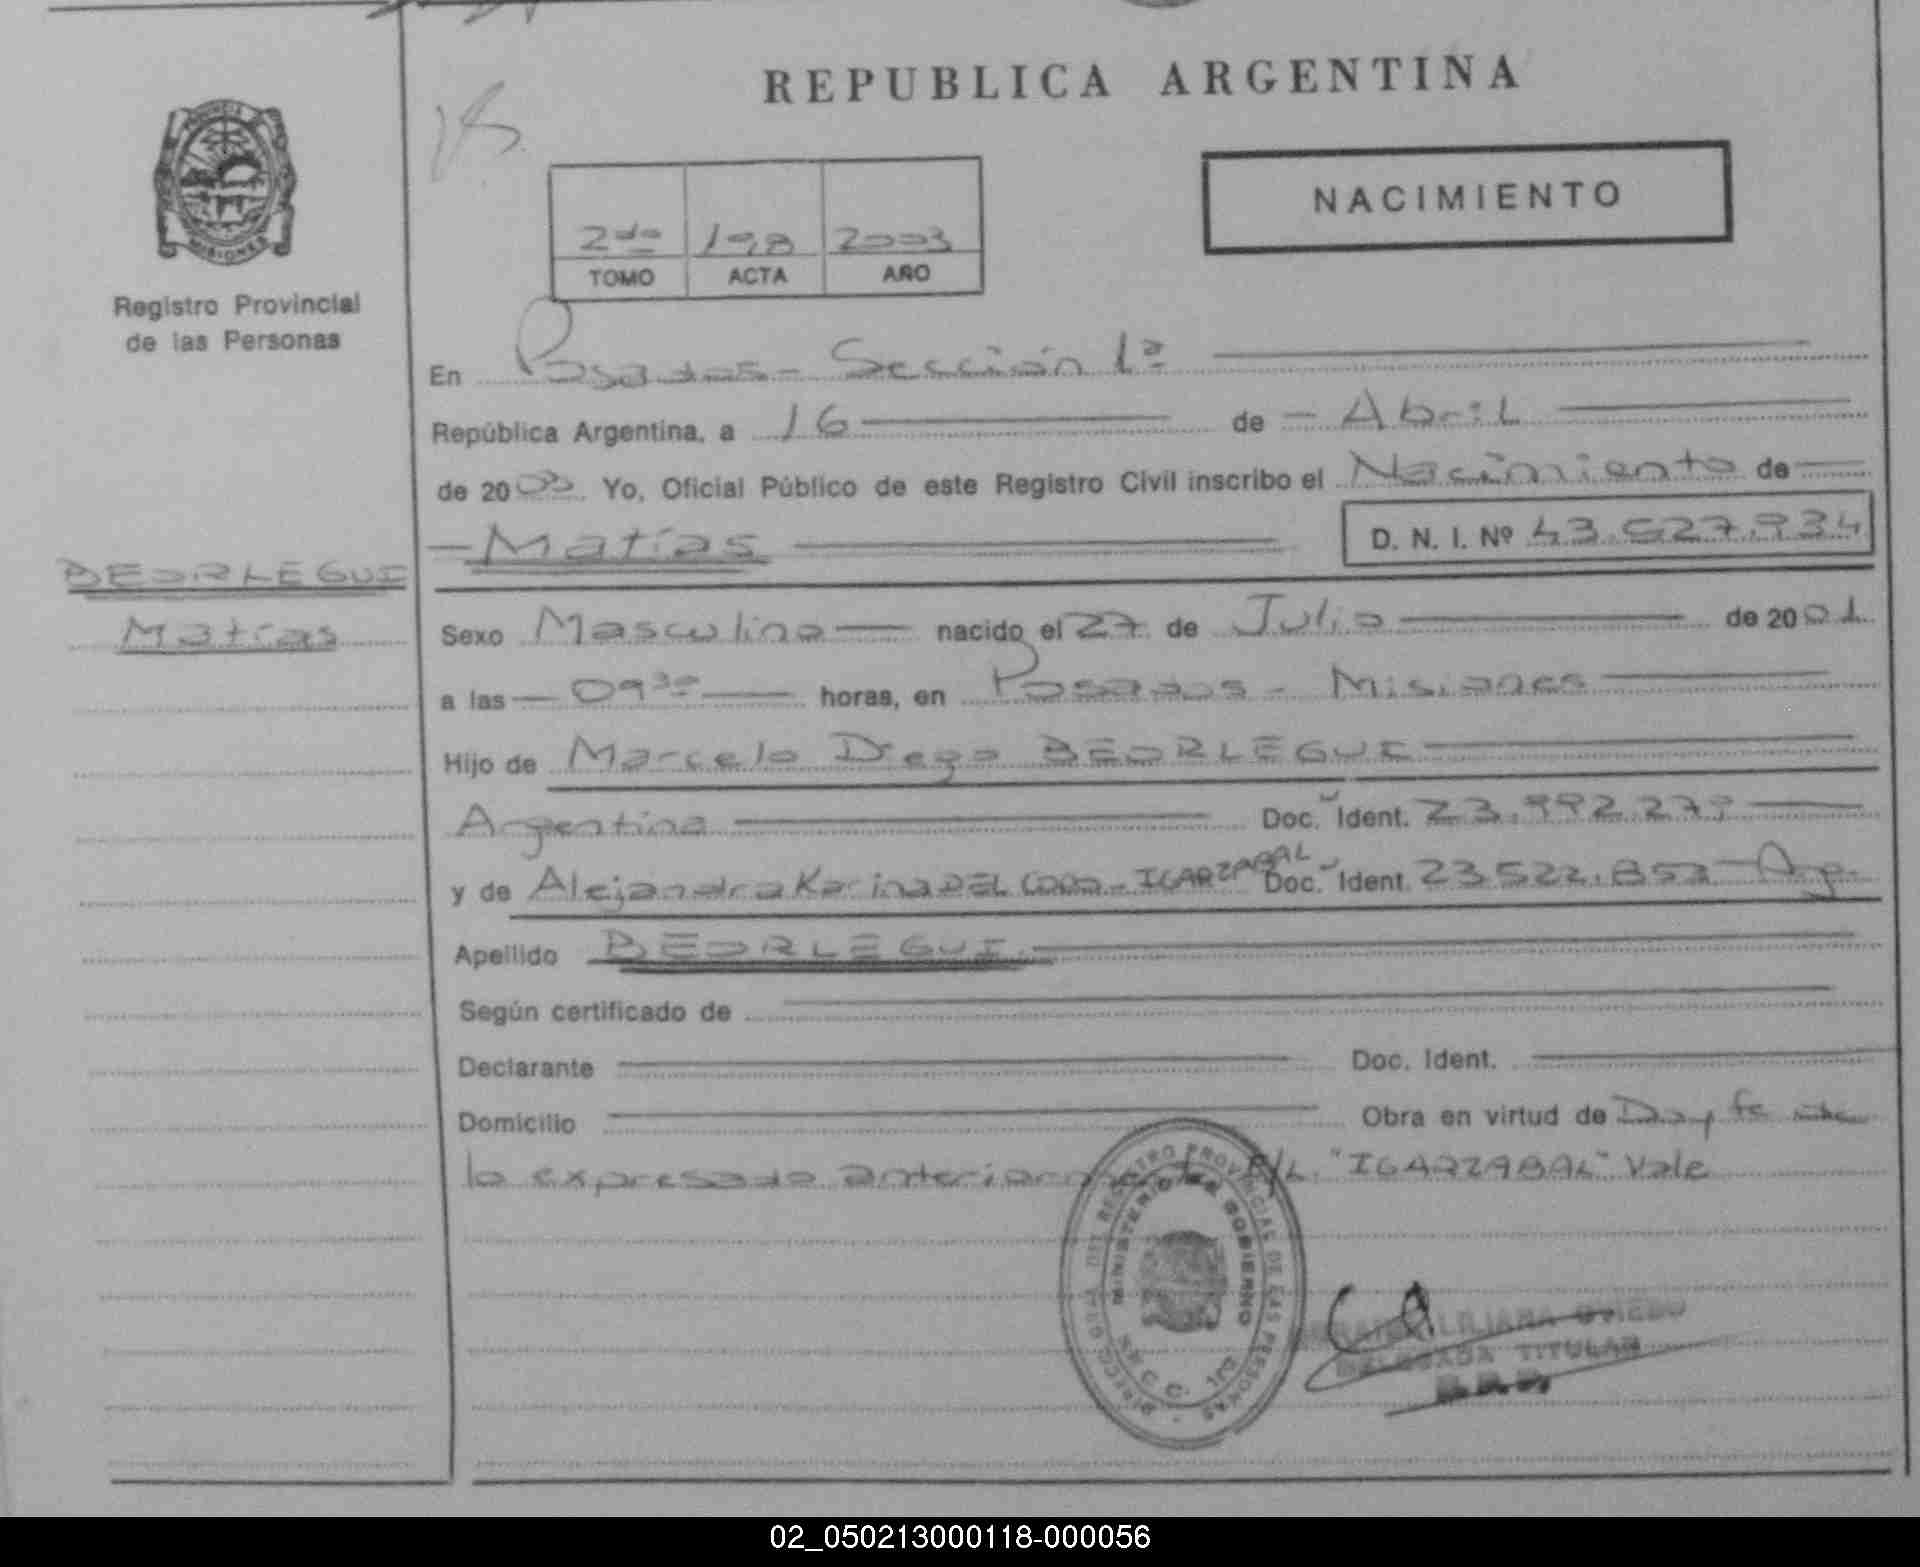 REPUBLICA ARGENTINA
PROVINCIA
MISIONES
Registro Provincial
de las Personas
NACIMIENTO
2do 198 2003
TOMO ACTA AÑO
En Posadas - Sección 1ª
República Argentina, a 16 de - Abril
de 2003 Yo, Oficial Público de este Registro Civil inscribo el Nacimiento de
- Matías D. N. I. Nº 43.527.934
BEORLEGUI
Matías
Sexo Masculino nacido el 27 de Julio de 2001
a las - 09³⁰ horas, en Posadas - Misiones
Hijo de Marcelo Diego BEORLEGUI
Argentina Doc. Ident. 23.992.279
y de Alejandra Karina DEL - IGARZABAL Doc. Ident. 23.522.852 - Arg.
Apellido BEORLEGUI
Según certificado de
Declarante Doc. Ident.
Domicilio Obra en virtud de Doy fe
lo expresado anteriormente E/L. "IGARZABAL" Vale
DIRECC. GRAL. DEL REGISTRO PROVINCIAL DE LAS PERSONAS
MINISTERIO DE GOBIERNO
SECC. 1ra
LILIANA OVIEDO
DELEGADA TITULAR
02_050213000118-000056